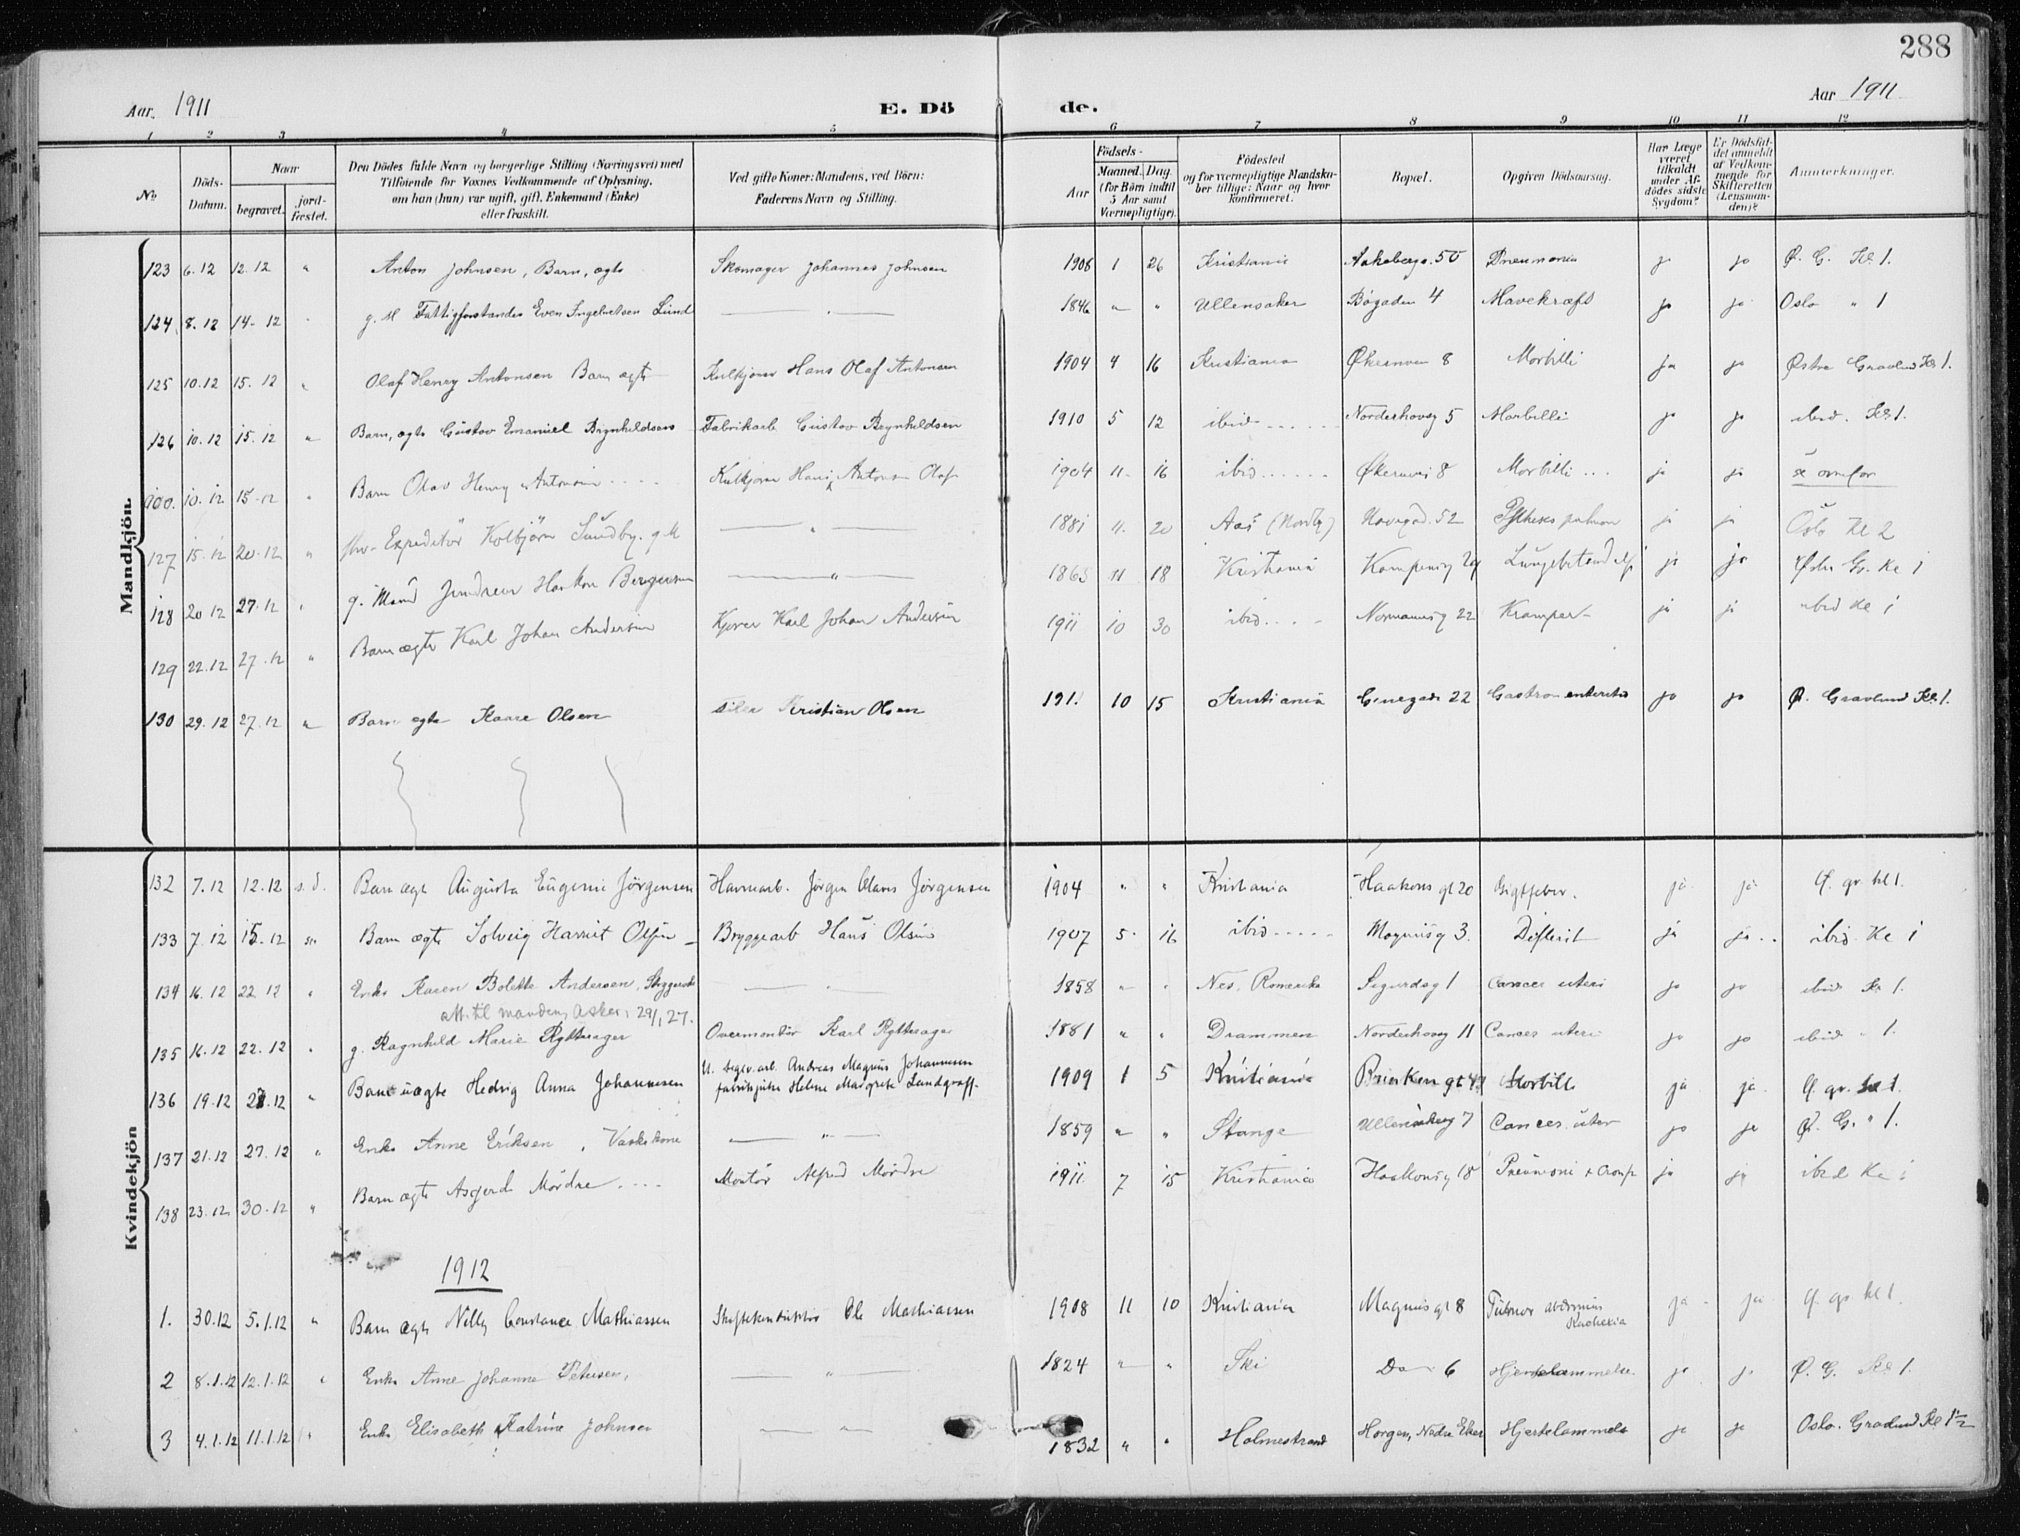 288
Aar. 1911 E. Dö de. Aar 1911
1 2 3 4 5 6 7 8 9 10 11 12
No Döds-Datum. Naar begravet. jord-fæstet. Den Dödes fulde Navn og borgerlige Stilling (Næringsvei) med Tilföiende for Voxnes Vedkommende af Oplysning, om han (hun) var ugift, gift, Enkemand (Enke) eller fraskilt. Ved gifte Koner: Mandens, ved Börn: Faderens Navn og Stilling. Födsels- Aar Maaned. Dag. (for Börn indtil 5 Aar samt Værnepligtige). Födested og for værnepligtige Mandskaber tillige: Naar og hvor konfirmeret. Bopæl. Opgiven Dödsaarsag. Har Læge været tilkaldt under Afdödes sidste Sygdom? Er Dödsfaldet anmeldt af Vedkommende for Skifteretten (Lensmanden)? Anmerkninger.
Mandkjön.
123 6.12 12.12 " Anton Johnsen, Barn, ægte Skomager Johannes Johnsen 1908 1 26 Kristiania Aakebergv. 50 Pneumonia ja ja Ø. G. Kl. 1.
124 8.12 14-12 g. M Fattigforstander Even Ingebretsen Lund — " — 1846 " " Ullensaker Bøgaden 4 Mavekræft ja ja Oslo " 1
125 10.12 15.12 " Olaf Henry Antonsen Barn ægte Kulkjører Hans Olaf Antonsen 1904 4 16 Kristiania Økernvei 8 Morbilli ja ja Østre Gravlund Kl 1.
126 10.12 15.12 " Barn, ægte Gustav Emanuel Brynhildsen Fabrikarb. Gustav Brynhildsen 1910 5 12 ibid Norderhovsg 5 Morbilli ja ja ibid. Kl. 1.
10.12 15-12 " Barn Olav Henry Antonsen Kulkjører Hans Antonsen Olaf 1904 11 16 ibid Økernvei 8 Morbilli ja ja se ovenfor
127 15.12 20-12 " Expeditör Kolbjörn Sundby. g. M — " — 1881 11. 20 Aas (Nordby) 52 Pthisis pulmon ja ja Oslo Kl 2
128 20 12 27.12 " g. Mand Haakon Bergersen — " — 1865 11 18 Kristiania Kampeng 24 ja ja Østre Gr. Kl 1
129 22.12 27.12 " Barn ægte Karl Johan Andersen Kjører Karl Johan Andersen 1911 10 30 ibid Normannsg 22 Kramper ja ja ibid Kl 1
130 29.12 27.12 " Barn ægte Kaare Olsen Kristian Olsen 191. 10 15 Kristiania 22 Gastro enteritis ja ja Ø. Gravlund Kl. 1.
Kvindekjön
132 7.12 12.12 s.d. Barn ægt Augusta Eugenie Jörgensen Havnearb. Jörgen Olaves Jörgensen 1904 " " Kristiania Haakons gt 20 Gigtfeber. ja ja Ø. gr. kl 1.
133 7.12 15.12 Barn ægte Solveig Harriet Olsen Bryggearb Hans Olsen 1907 5. 16 ibid Magnusg 3. Difterit ja ja ibid Kl 1
134 16.12 22 12 " Enke Karen Bolette Andersen, — " — 1858 " " Nes, Romerike Sigurdsg 1 Cancer uteri ja ja ibid Kl 1.
att. til manden, Asker, 29/1 27.
135 16.12 22.12 " g. Ragnhild Marie Rytterager Overmontör Karl Rytterager 1881 " " Drammen Norderhovsg 11 Cancer uteri ja ja ibid " 1.
136 19.12 28.12 " Barn uægte Hedvig Anna Johannesen U. arb. Andreas Magnus Johannesen fabrikpike Helene Margrete Landgraff. 1909 1 5 Kristiania Briskeu gt 4 Morbilli ja ja Ø. gr. kl 1.
137 21.12 27.12 " Enke Anne Eriksen, Vaskekone — " — 1859 " " Stange 7 Cancer uteri ja ja Ø. G. " 1.
138 23.12 30.12 " Barn ægte Asgjerd Mördre Montör Alfred Mördre 1911 7 15 Kristiania Haakonsg 18 Pneumoni + Croup ja ja ibid Kl 1
1912
1. 30.12 5.1.12 " Barn ægte Nelly Constance Mathiassen Ole Mathiassen 1908 11 10 Kristiania Magnus gt 8 Tumor abdominis Kachexia ja ja Ø. gr kl 1.
2 8.1.12 12.1.12 " Enke Anne Johanne Petersen, — " — 1824 " " Ski Do 6 Hjertelammelse. ja ja Ø. G. Kl. 1.
3 4.1.12 11.1.12 " Enke Elisabeth Katrine Johnsen — " — 1832 " " Holmestrand Horgen, Nedre Eker Hjertelammelse ja ja Oslo. Gravlund Kl 1